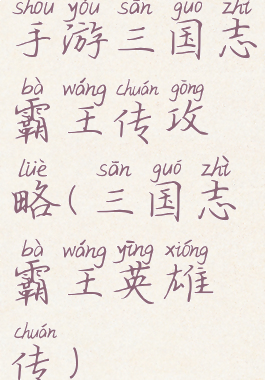 shǒu yóu sān guó zhì
手游三国志
bà wáng chuán gōng
霸王传攻
lüè sān guó zhì
略(三国志
bà wáng yīng xióng
霸王英雄
chuán
传)